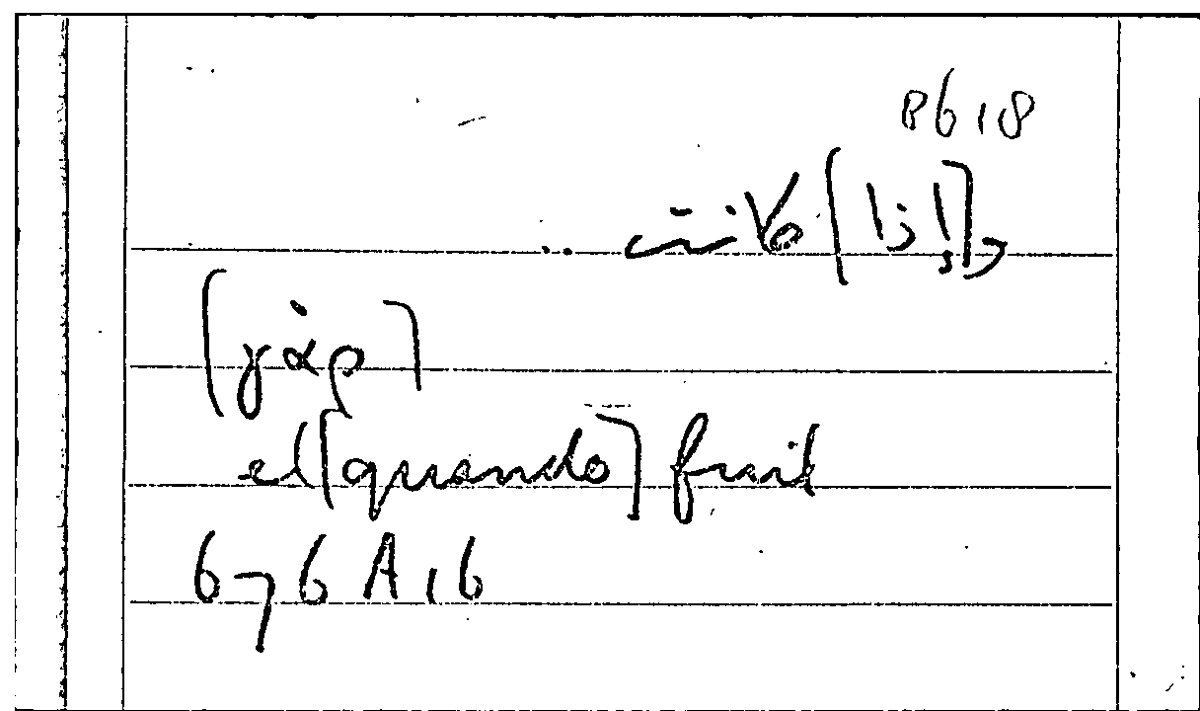 86,8
و[إذا] كانت ..
[γὰρ]
et [quando] fuit
676 A,6